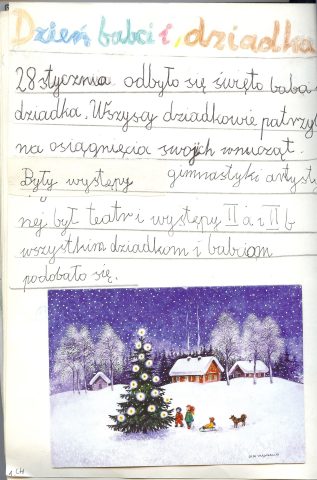 Dzień babci i dziadka
28 stycznia odbyło się święto baba
dziadka. Wszyscy dziadkowie patrzyl
na osiągnięcia swojch wnucząt.
Były występy gimnastyki artyst
nej był teatr i występy II a i II b
wszystkim dziadkom i babciom
podobało się.